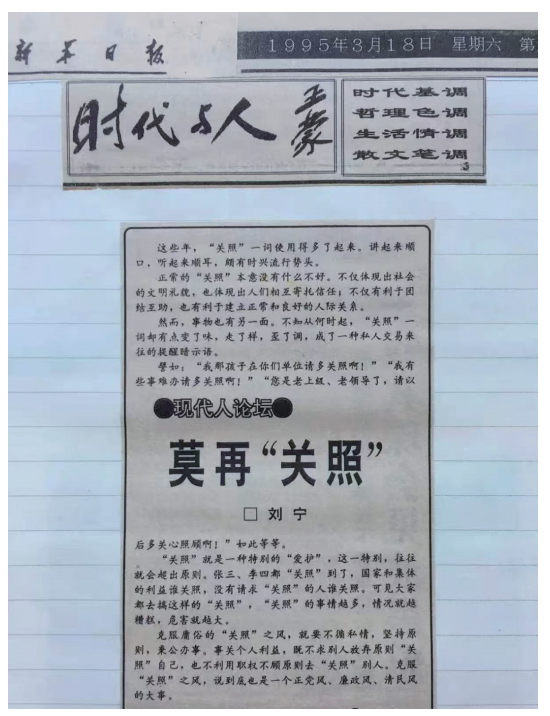 新华日报
1995年3月18日 星期六 第
时代与人
王蒙
时代基调
哲理色调
生活情调
散文笔调
这些年，“关照”一词使用得多了起来。讲起来顺
口，听起来顺耳，颇有时兴流行势头。
正常的“关照”本意没有什么不好。不仅体现出社会
的文明礼貌，也体现出人们相互寄托信任；不仅有利于团
结互助，也有利于建立正常和良好的人际关系。
然而，事物也有另一面。不知从何时起，“关照”一
词却有点变了味，走了样，歪了调，成了一种私人交易来
往的提醒暗示语。
譬如：“我那孩子在你们单位请多关照啊！”“我有
些事难办请多关照啊！”“您是老上级、老领导了，请以
现代人论坛
莫再“关照”
□ 刘宁
后多关心照顾啊！”如此等等。
“关照”就是一种特别的“爱护”，这一特别，往往
就会超出原则。张三、李四都“关照”到了，国家和集体
的利益谁关照，没有请求“关照”的人谁关照。可见大家
都去搞这样的“关照”，“关照”的事情越多，情况就越
糟糕，危害就越大。
克服庸俗的“关照”之风，就要不徇私情，坚持原
则，秉公办事。事关个人利益，既不求别人放弃原则“关
照”自己，也不利用职权不顾原则去“关照”别人。克服
“关照”之风，说到底也是一个正党风、廉政风、清民风
的大事。